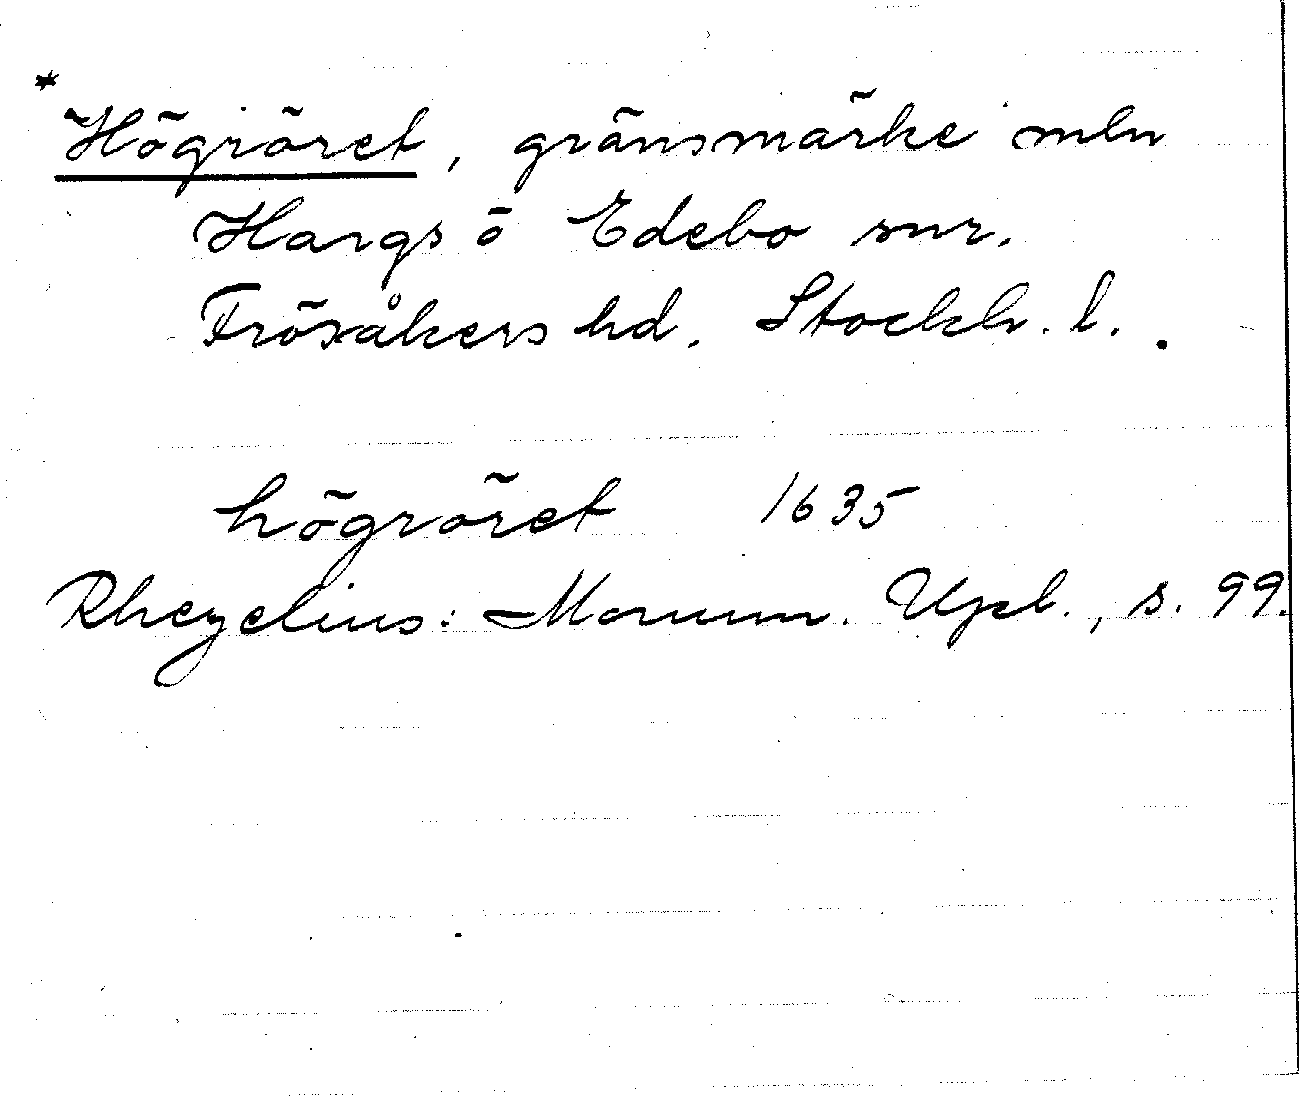 * Högröret, gränsmärke mln
Hargs o Edebo snr.
Frösåkers hd. Stockh. l.
högröret 1635
Rhezelius: Monum. Upl., s. 99.